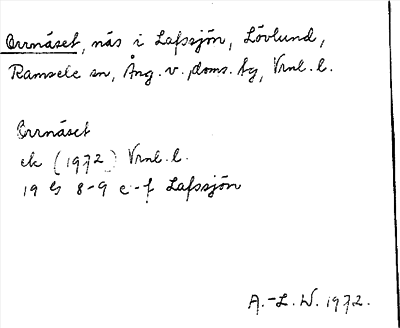 Orrnäset, näs i Lafssjön, Lövlund,
Ramsele sn, Ång. v. doms. tg, Vrnl. l.
Orrnäset
ek (1972) Vrnl. l.
19 G 8-9 e-f Lafssjön
A.-L. W. 1972.